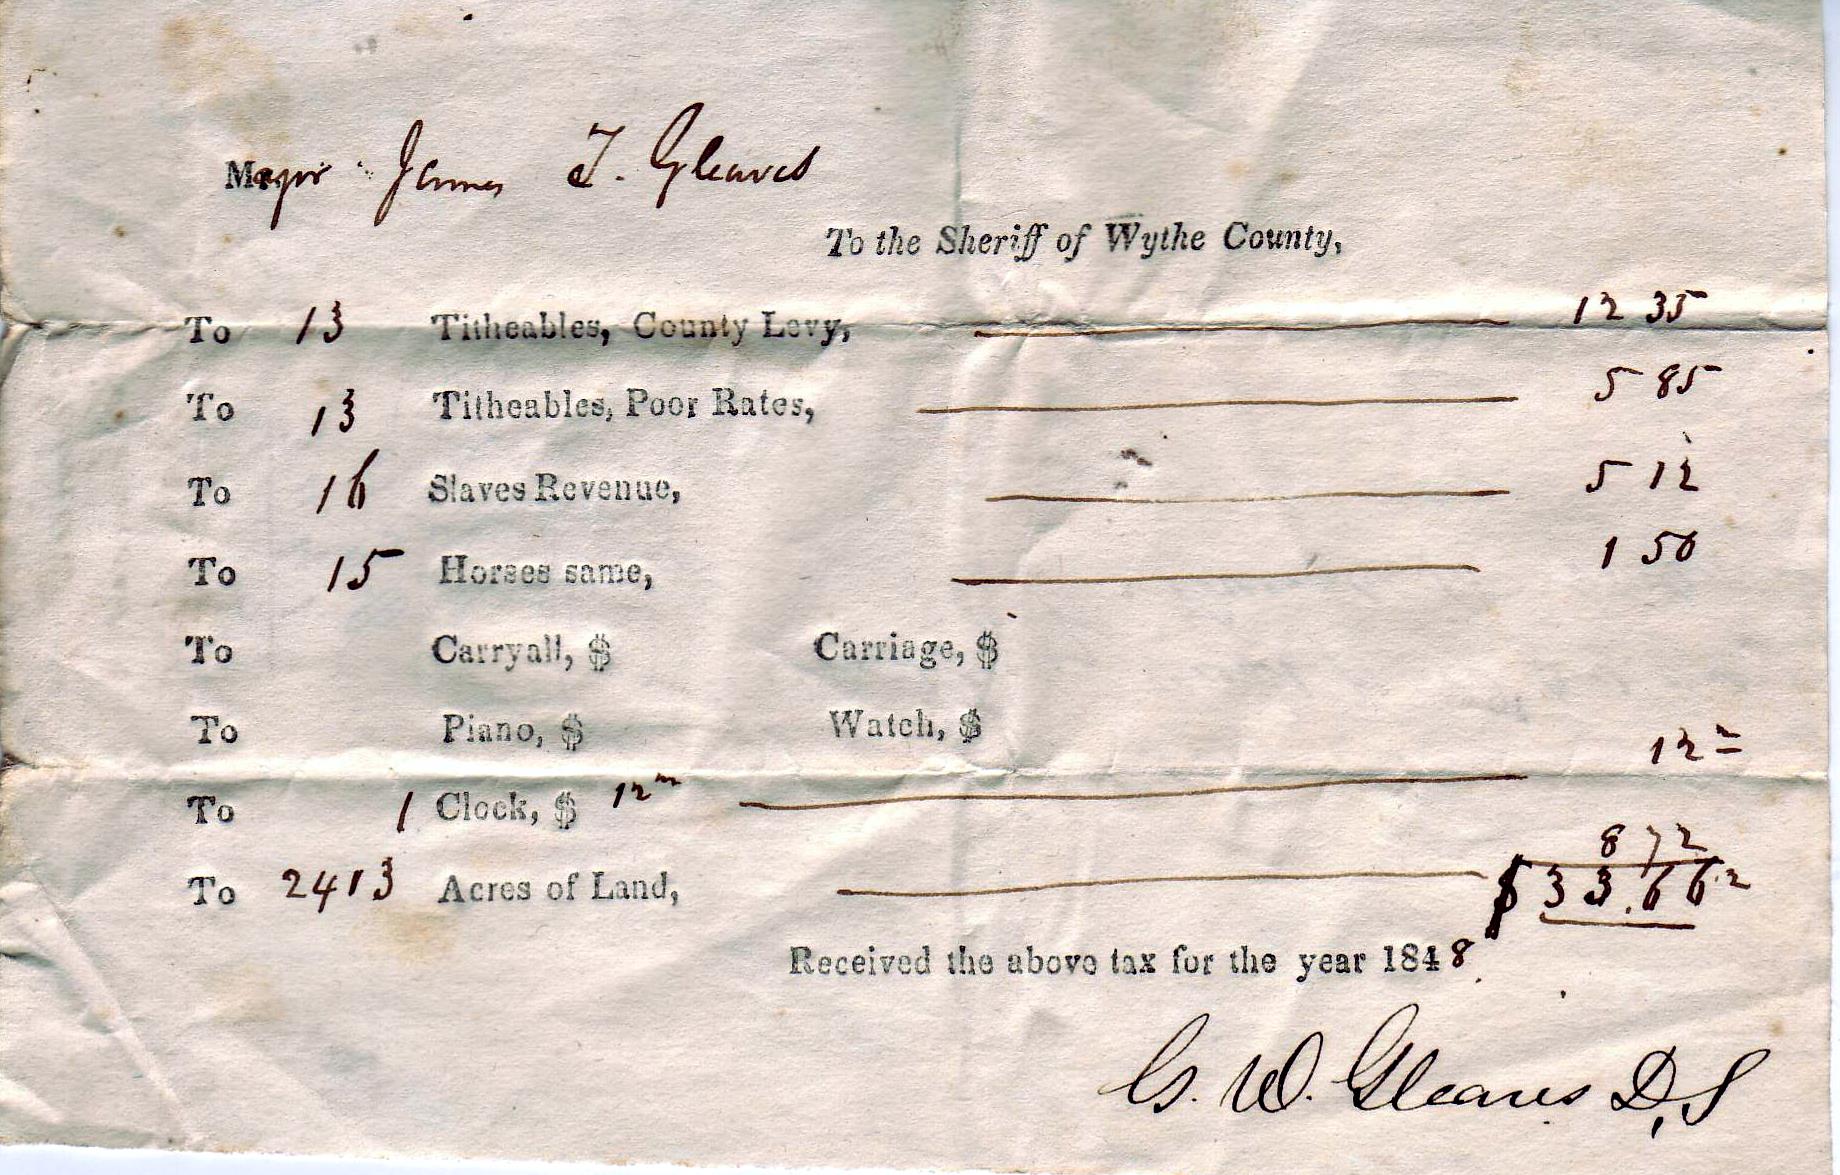 Major James T. Gleaves
To the Sheriff of Wythe County,
To 13 Titheables, County Levy, 12 35
To 13 Titheables, Poor Rates, 5 85
To 16 Slaves Revenue, 5 12
To 15 Horses same, 1 50
To Carryall, $ Carriage, $
To Piano, $ Watch, $
To 1 Clock, $ 12 12 2
To 2413 Acres of Land, 8 72
$33.66.2
Received the above tax for the year 1848.
G. W. Gleaves D,S